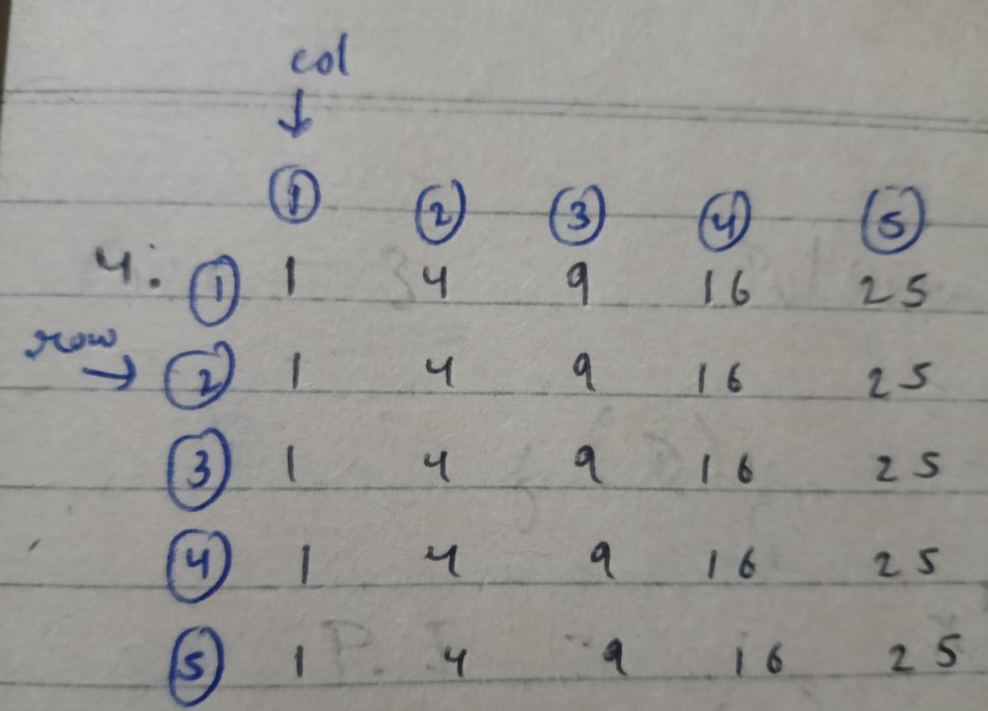 col
↓
① ② ③ ④ ⑤
4. ① 1 4 9 16 25
row → ② 1 4 9 16 25
③ 1 4 9 16 25
④ 1 4 9 16 25
⑤ 1 4 9 16 25